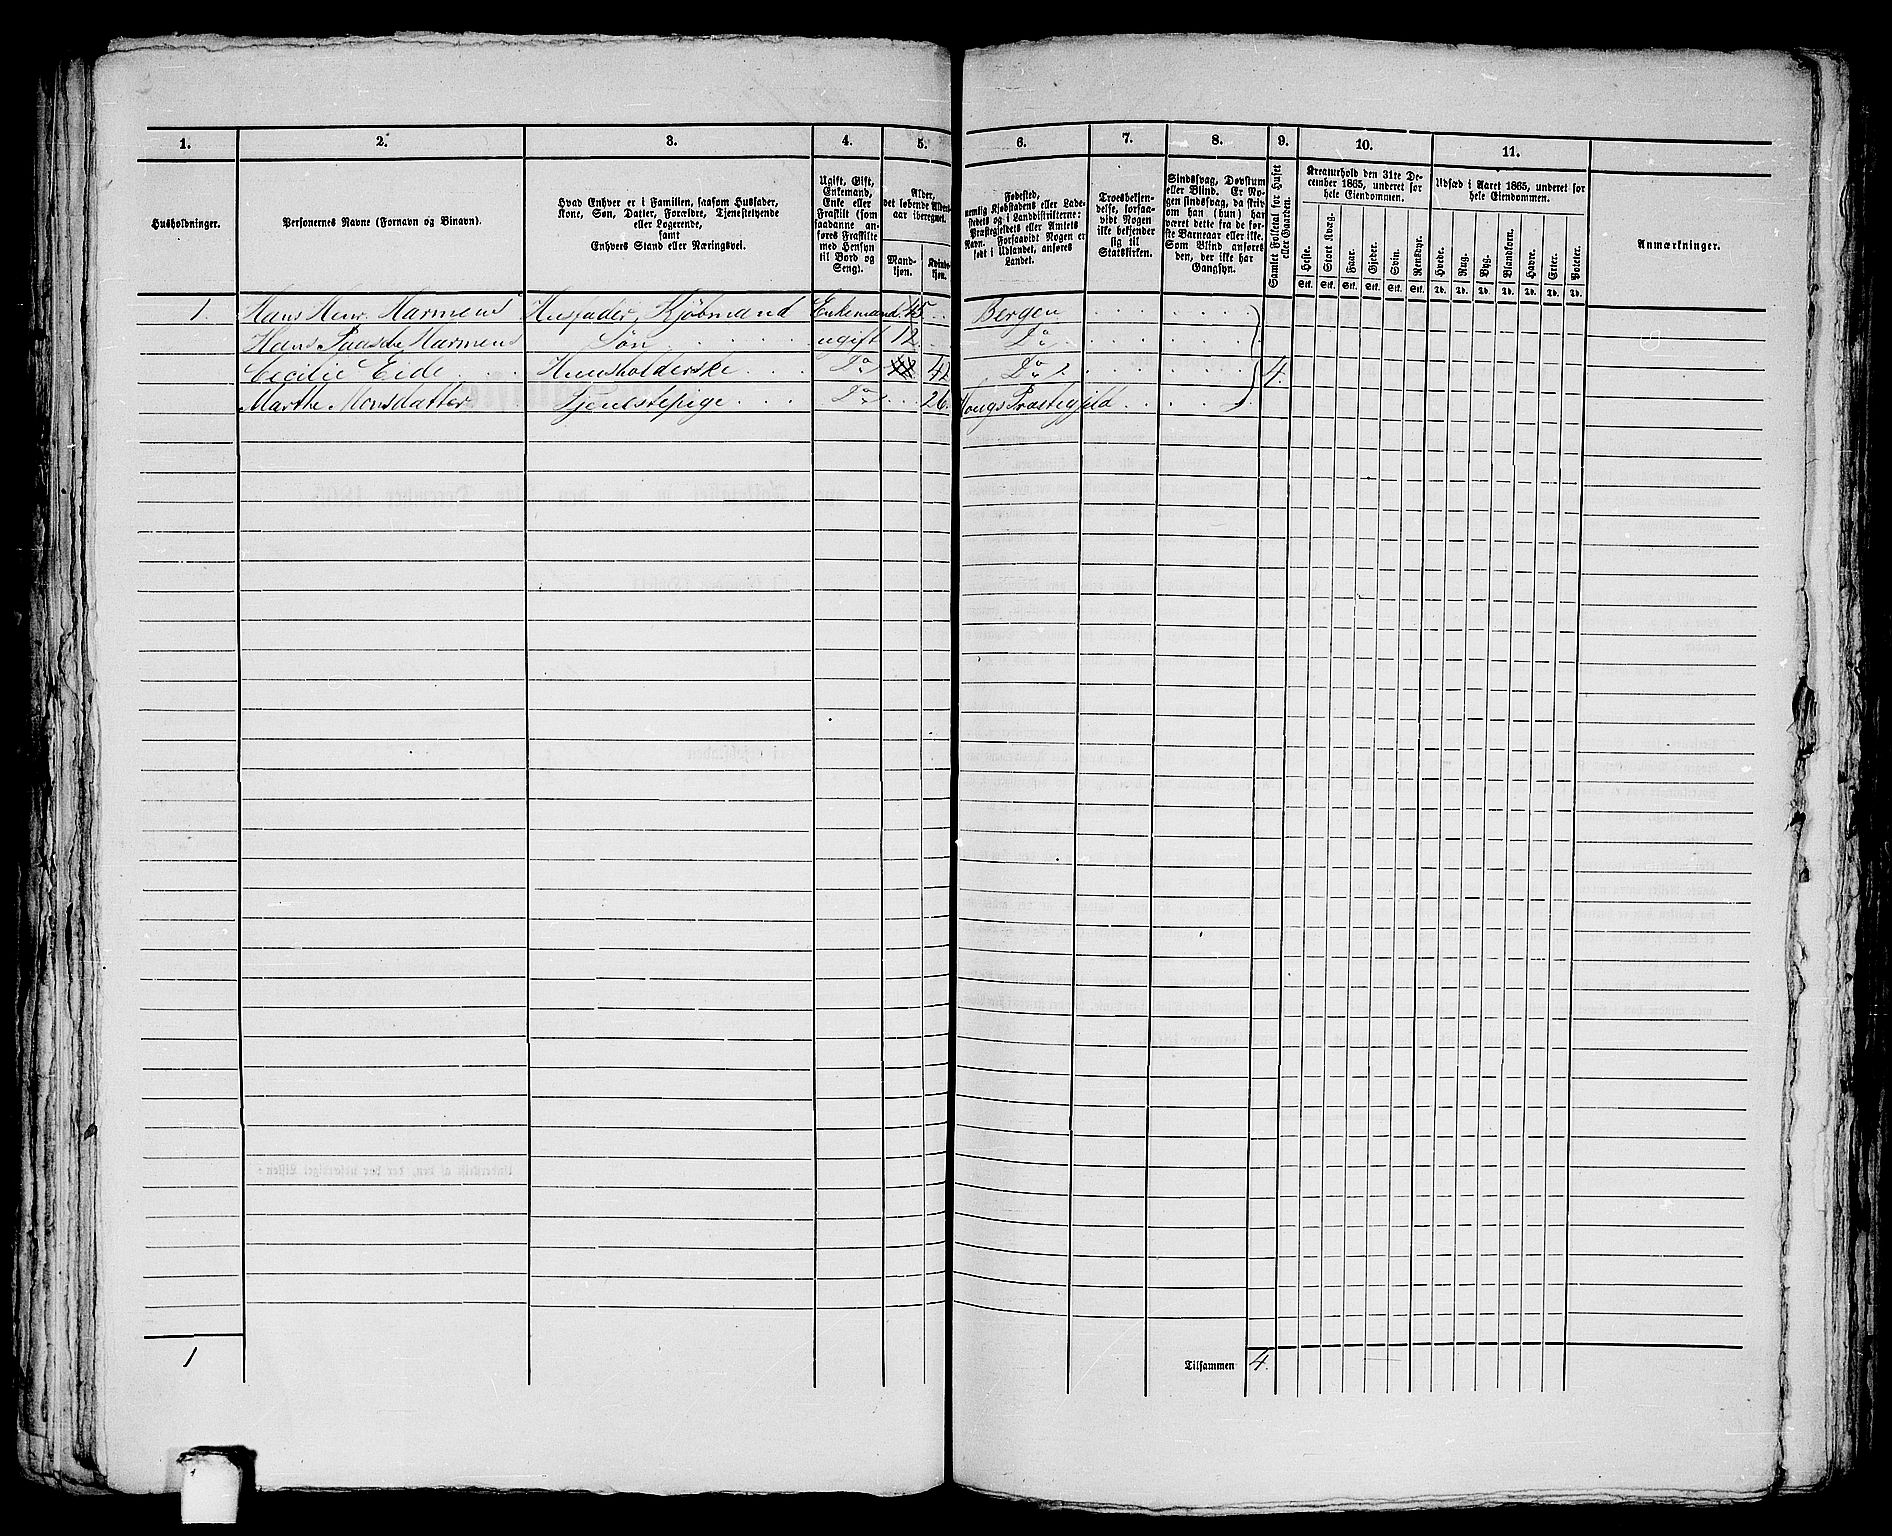 1. 2. 3. 4. 5. 6. 7. 8. 9. 10. 11.
Husholdninger.
Personernes Navne (Fornavn og Binavn).
Hvad Enhver er i Familien, saasom Husfader,
Kone, Søn, Datter, Forældre, Tjenestetyende
eller Logerende,
samt
Enhvers Stand eller Næringsvei.
Ugift, Gift,
Enkemand,
Enke eller
Fraskilt (som
saadanne an-
føres Fraskilte
med Hensyn
til Bord og
Seng).
Alder,
det løbende Alders-
aar iberegnet.
Mand-
kjøn.
Kvinde-
kjøn.
Fødested,
nemlig Kjøbstadens eller Lade-
stedets og i Landdistrikterne:
Præstegjeldets eller Amtets
Navn. Forsaavidt Nogen er
født i Udlandet, anføres
Landet.
Troesbekjen-
delse, forsaa-
vidt Nogen
ikke bekjender
sig til
Statskirken.
Sindssvag, Døvstum
eller Blind. Er No-
gen sindssvag, da skriv
om han (hun) har
været dette fra de før-
ste Barneaar eller ikke.
Som Blind anføres
den, der ikke har
Gangsyn.
Samlet Folketal for Huset
eller Gaarden.
Kreaturhold den 31te De-
cember 1865, underet for
hele Eiendommen.
Heste. Stort Kvæg. Faar. Gjeder. Sviin. Rensdyr.
Stk. Stk. Stk. Stk. Stk. Stk.
Udsæd i Aaret 1865, underet for
hele Eiendommen.
Hvede. Rug. Byg. Blandkorn. Havre. Erter. Poteter.
Td. Td. Td. Td. Td. Td. Td.
Anmærkninger.
1. Hans Henr. Harmens Husfader, Kjøbmand Enkemand 45 Bergen
Hans Paasche Harmens Søn ugift 12 Do
Cecilie Eide Huusholderske Do 42 Do 4.
Marthe Monsdatter Tjenestepige Do 26 Hougs Præstegjeld
1 Tilsammen 4.